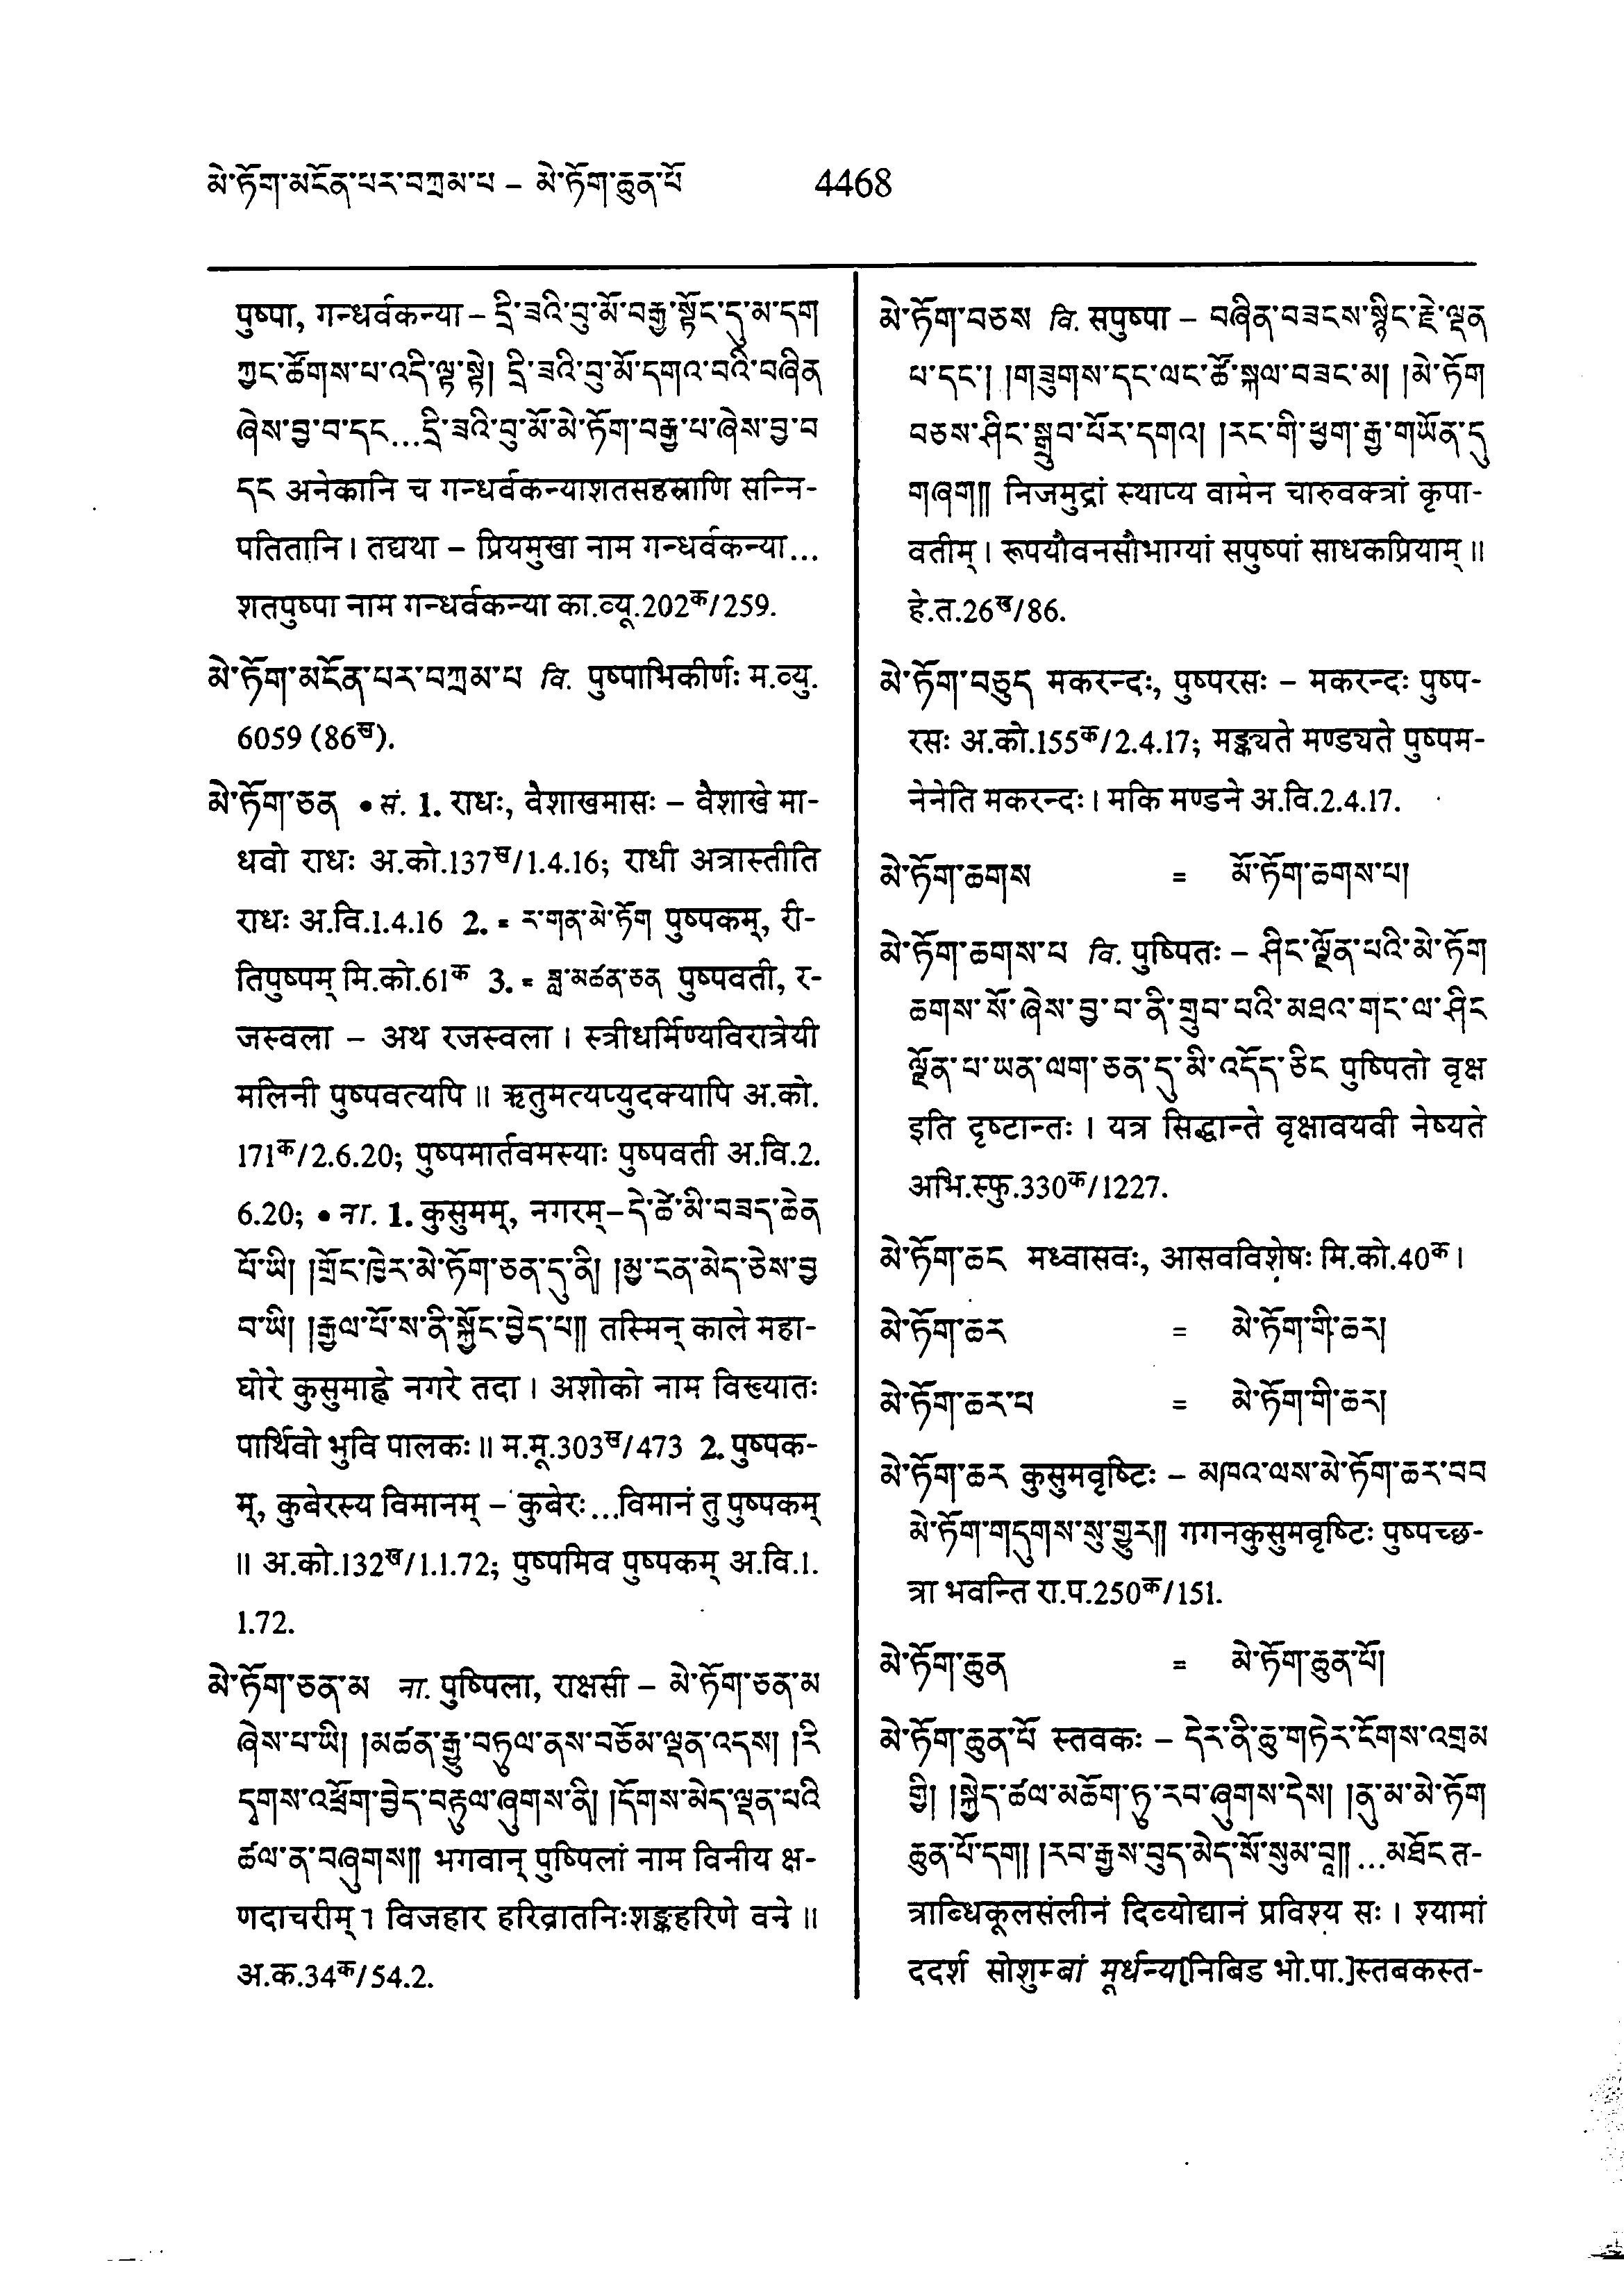 མེ་ཏོག་མངོན་པར་བཀྲམ་པ – མེ་ཏོག་ཆུན་པོ 4468
पुष्पा, गन्धर्वकन्या – དྲི་ཟའི་བུ་མོ་བརྒྱ་སྟོང་དུ་མ་དག
ཀྱང་ཚོགས་པ་འདི་ལྟ་སྟེ། དྲི་ཟའི་བུ་མོ་དགའ་བའི་བཞིན
ཞེས་བྱ་བ་དང...དྲི་ཟའི་བུ་མོ་མེ་ཏོག་བརྒྱ་པ་ཞེས་བྱ་བ
དང अनेकानि च गन्धर्वकन्याशतसहस्राणि सन्नि-
पतितानि । तद्यथा – प्रियमुखा नाम गन्धर्वकन्या...
शतपुष्पा नाम गन्धर्वकन्या का.व्यू.202क/259.
མེ་ཏོག་མངོན་པར་བཀྲམ་པ वि. पुष्पाभिकीर्णः म.व्यु.
6059 (86ख).
མེ་ཏོག་ཅན • सं. 1. राधः, वैशाखमासः – वैशाखे मा-
धवो राधः अ.को.137ख/1.4.16; राधी अत्रास्तीति
राधः अ.वि.1.4.16 2. = ར་གན་མེ་ཏོག पुष्पकम्, री-
तिपुष्पम् मि.को.61क 3. = ཟླ་མཚན་ཅན पुष्पवती, र-
जस्वला – अथ रजस्वला । स्त्रीधर्मिण्यविरात्रेयी
मलिनी पुष्पवत्यपि ॥ ऋतुमत्यप्युदक्यापि अ.को.
171क/2.6.20; पुष्पमार्तवमस्याः पुष्पवती अ.वि.2.
6.20; • ना. 1. कुसुमम्, नगरम्–དེ་ཚེ་མི་བཟད་ཆེན
པོ་ཡི། །གྲོང་ཁྱེར་མེ་ཏོག་ཅན་དུ་ནི། །མྱ་ངན་མེད་ཅེས་བྱ
བ་ཡི། །རྒྱལ་པོ་ས་ནི་སྐྱོང་བྱེད་པ༎ तस्मिन् काले महा-
घोरे कुसुमाह्वे नगरे तदा । अशोको नाम विख्यातः
पार्थिवो भुवि पालकः ॥ म.मू.303ख/473 2. पुष्पक-
म्, कुबेरस्य विमानम् – कुबेरः...विमानं तु पुष्पकम्
॥ अ.को.132ख/1.1.72; पुष्पमिव पुष्पकम् अ.वि.1.
1.72.
མེ་ཏོག་ཅན་མ ना. पुष्पिला, राक्षसी – མེ་ཏོག་ཅན་མ
ཞེས་པ་ཡི། །མཚན་རྒྱུ་བཏུལ་ནས་བཅོམ་ལྡན་འདས། །རི
དྭགས་འཕྲོག་བྱེད་བརྟུལ་ཞུགས་ནི། །དོགས་མེད་ལྡན་པའི
ཚལ་ན་བཞུགས༎ भगवान् पुष्पिलां नाम विनीय क्ष-
णदाचरीम् । विजहार हरिव्रातनिःशङ्कहरिणे वने ॥
अ.क.34क/54.2.
མེ་ཏོག་བཅས वि. सपुष्पा – བཞིན་བཟངས་སྙིང་རྗེ་ལྡན
པ་དང་། །གཟུགས་དང་ལང་ཚོ་སྐལ་བཟང་མ། །མེ་ཏོག
བཅས་ཤིང་སྒྲུབ་པོར་དགའ། །རང་གི་ཕྱག་རྒྱ་གཡོན་དུ
གཞག༎ निजमुद्रां स्थाप्य वामेन चारुवक्त्रां कृपा-
वतीम् । रूपयौवनसौभाग्यां सपुष्पां साधकप्रियाम् ॥
हे.त.26ख/86.
མེ་ཏོག་བཅུད मकरन्दः, पुष्परसः – मकरन्दः पुष्प-
रसः अ.को.155क/2.4.17; मङ्क्यते मण्ड्यते पुष्पम-
नेनेति मकरन्दः । मकि मण्डने अ.वि.2.4.17.
མེ་ཏོག་ཆགས = མོ་ཏོག་ཆགས་པ།
མེ་ཏོག་ཆགས་པ वि. पुष्पितः – ཤིང་ལྗོན་པའི་མེ་ཏོག
ཆགས་སོ་ཞེས་བྱ་བ་ནི་གྲུབ་པའི་མཐའ་གང་ལ་ཤིང
ལྗོན་པ་ཡན་ལག་ཅན་དུ་མི་འདོད་ཅིང पुष्पितो वृक्ष
इति दृष्टान्तः । यत्र सिद्धान्ते वृक्षावयवी नेष्यते
अभि.स्फु.330क/1227.
མེ་ཏོག་ཆང मध्वासवः, आसवविशेषः मि.को.40क ।
མེ་ཏོག་ཆར = མེ་ཏོག་གི་ཆར།
མེ་ཏོག་ཆར་པ = མེ་ཏོག་གི་ཆར།
མེ་ཏོག་ཆར कुसुमवृष्टिः – མཁའ་ལས་མེ་ཏོག་ཆར་བབ
མེ་ཏོག་གདུགས་སུ་གྱུར༎ गगनकुसुमवृष्टिः पुष्पच्छ-
त्रा भवन्ति रा.प.250क/151.
མེ་ཏོག་ཆུན = མེ་ཏོག་ཆུན་པོ།
མེ་ཏོག་ཆུན་པོ स्तवकः – དེར་ནི་ཆུ་གཏེར་ངོགས་འགྲམ
གྱི། །སྐྱེད་ཚལ་མཆོག་ཏུ་རབ་ཞུགས་དེས། །ནུ་མ་མེ་ཏོག
ཆུན་པོ་དག། །རབ་རྒྱས་བུད་མེད་སོ་སུམ་བཱ༎ ...མཐོང त-
त्राब्धिकूलसंलीनं दिव्योद्यानं प्रविश्य सः । श्यामां
ददर्श सोशुम्बां मूर्धन्य[निबिड भो.पा.]स्तबकस्त-